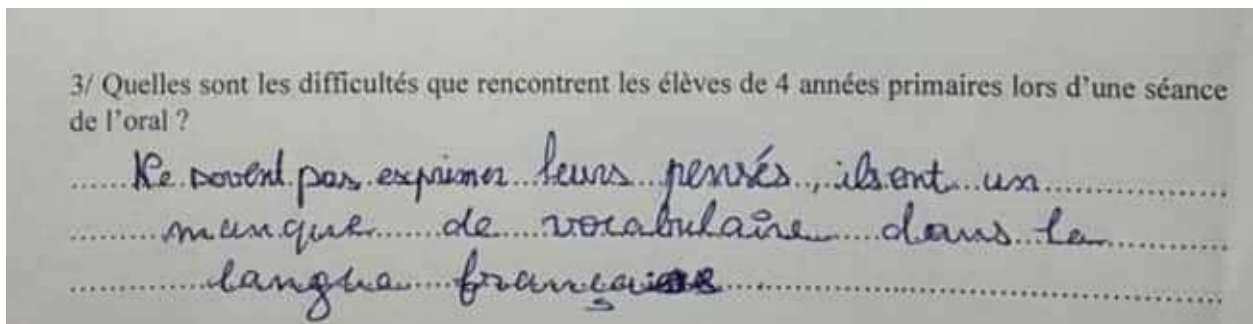 3/ Quelles sont les difficultés que rencontrent les élèves de 4 années primaires lors d'une séance
de l'oral ?
Ne savent pas exprimer leurs pensés, ils ont un
manque de vocabulaire dans la
langue française